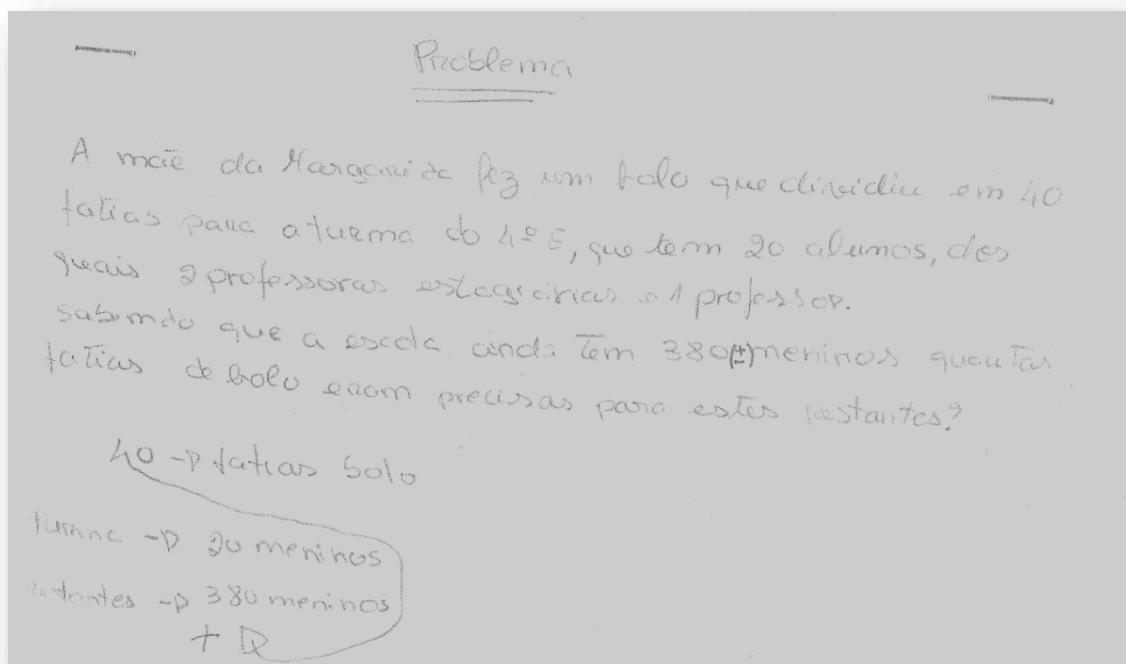 Problema
A mãe da Margarida fez um bolo que dividiu em 40
fatias para a turma do 4º E, que tem 20 alunos, dos
quais 2 professoras estagiárias e 1 professor.
Sabendo que a escola ainda tem 380(±) meninos quantas
fatias de bolo eram precisas para estes restantes?
40 -> fatias bolo
turma -> 20 meninos
restantes -> 380 meninos
+